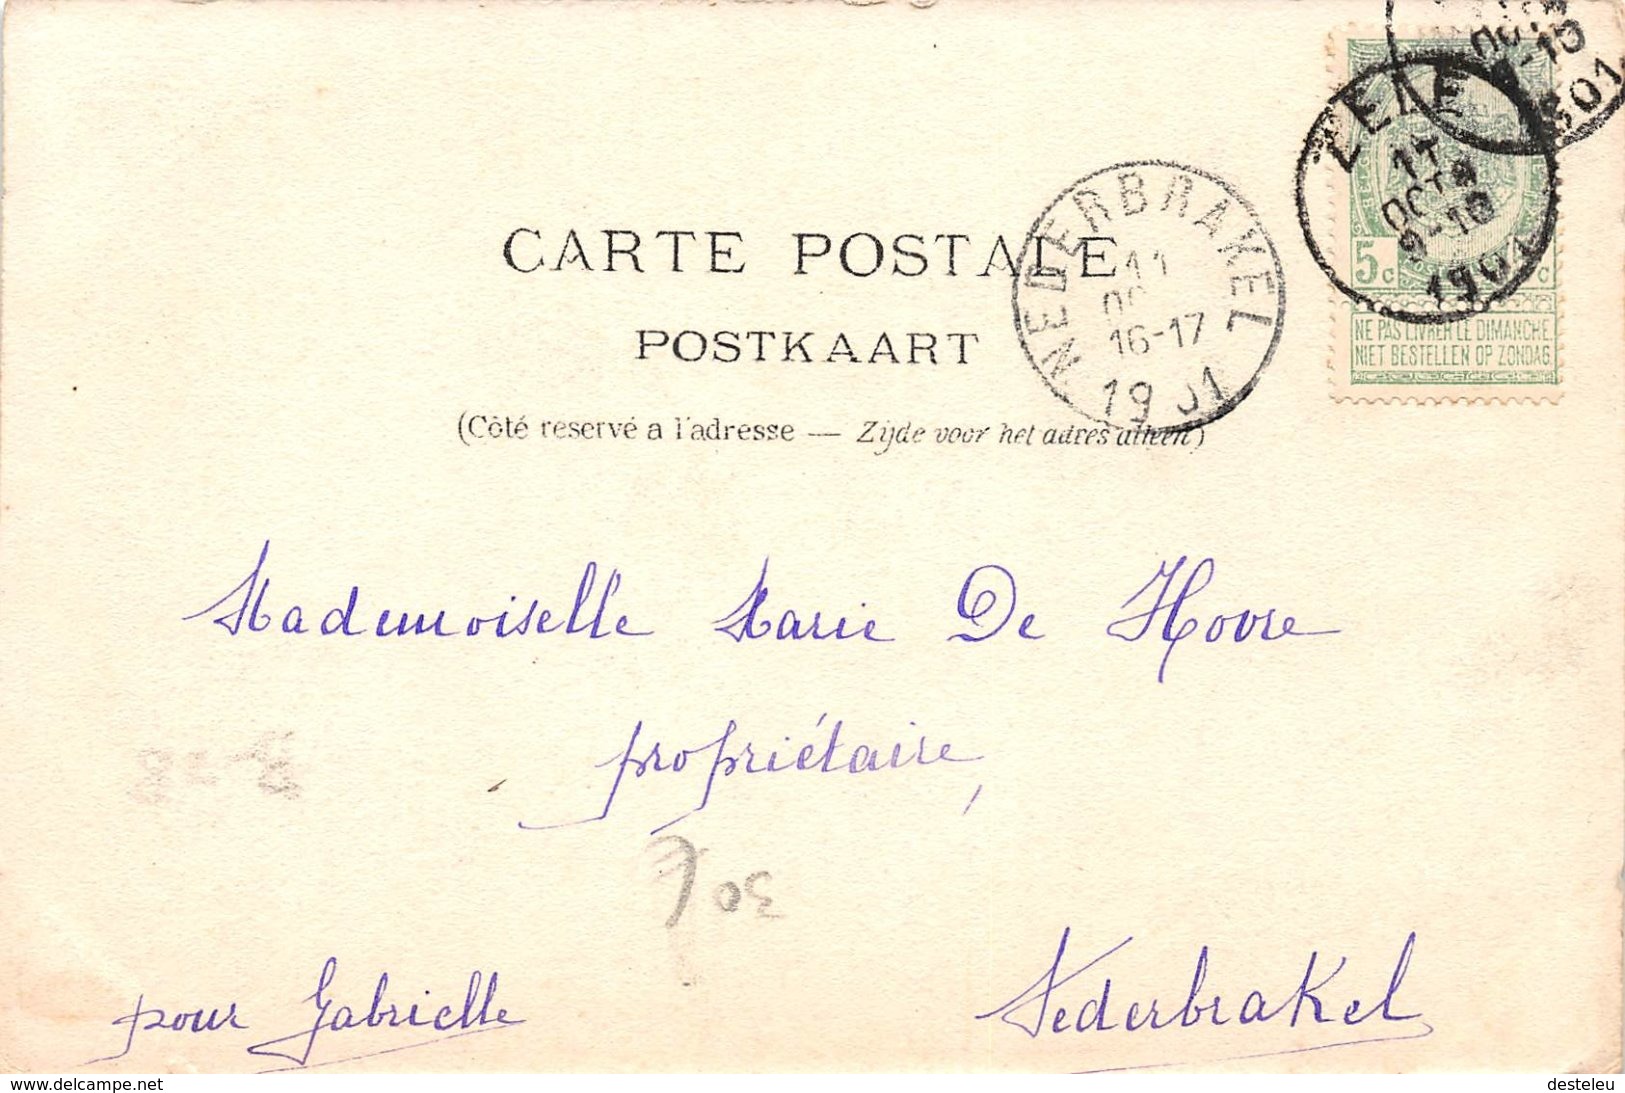 CARTE POSTALE
POSTKAART
(Côté reservé a l'adresse — Zijde voor het adres alleen)
NEDERBRAKEL
11
16-17
ZELE
11
OCT
9-10
1901
5c
NE PAS LIVRER LE DIMANCHE.
NIET BESTELLEN OP ZONDAG.
Mademoiselle Marie De Hovre
propriétaire,
pour Gabrielle
Nederbrakel
www.delcampe.net
desteleu